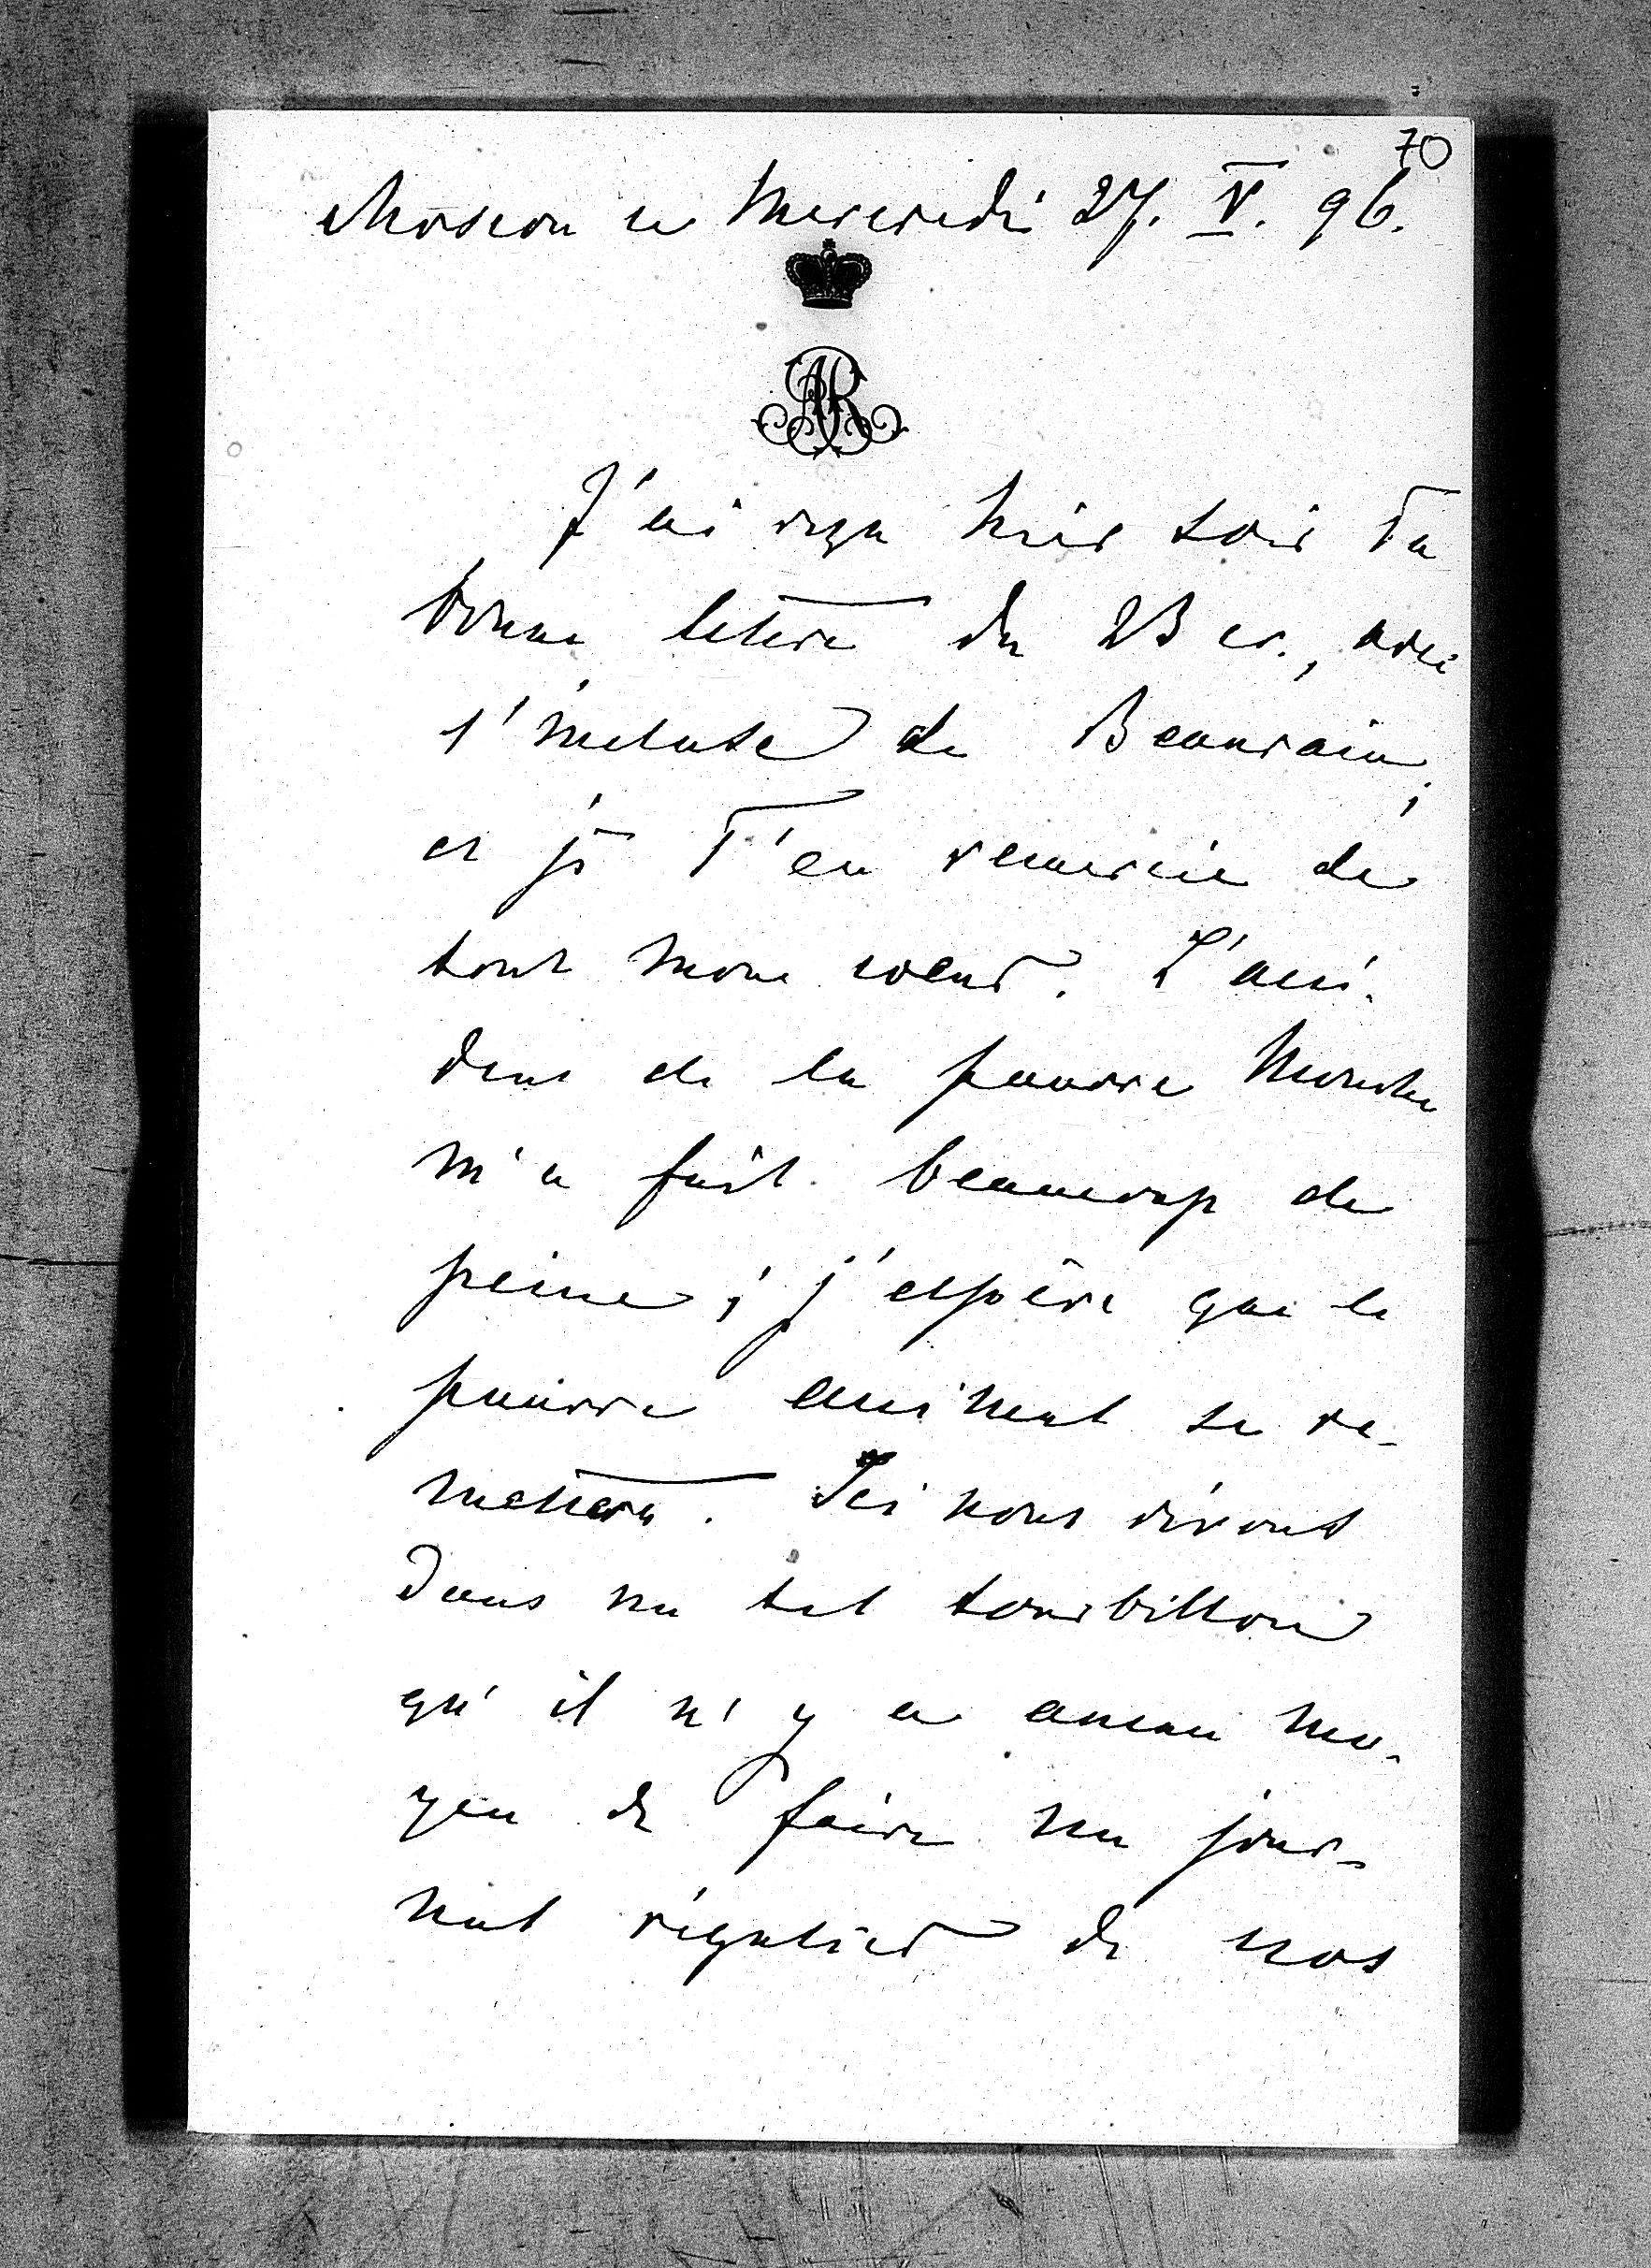 70
Moscou ce Mercredi 27. V. 96.
AR
J'ai reçu hier soir Ta
bonne lettre du 23 cr., avec
l'incluse de Beaurain,
et je T'en remercie de
tout mon cœur. L'acci-
dent de la pauvre Mouche
m'a fait beaucoup de
peine; j'espère que le
pauvre animal se re-
mettera. Ici nous vivons
dans un tel tourbillon
qu'il n'y a aucun mo-
yen de faire un jour-
nal régulier de nos